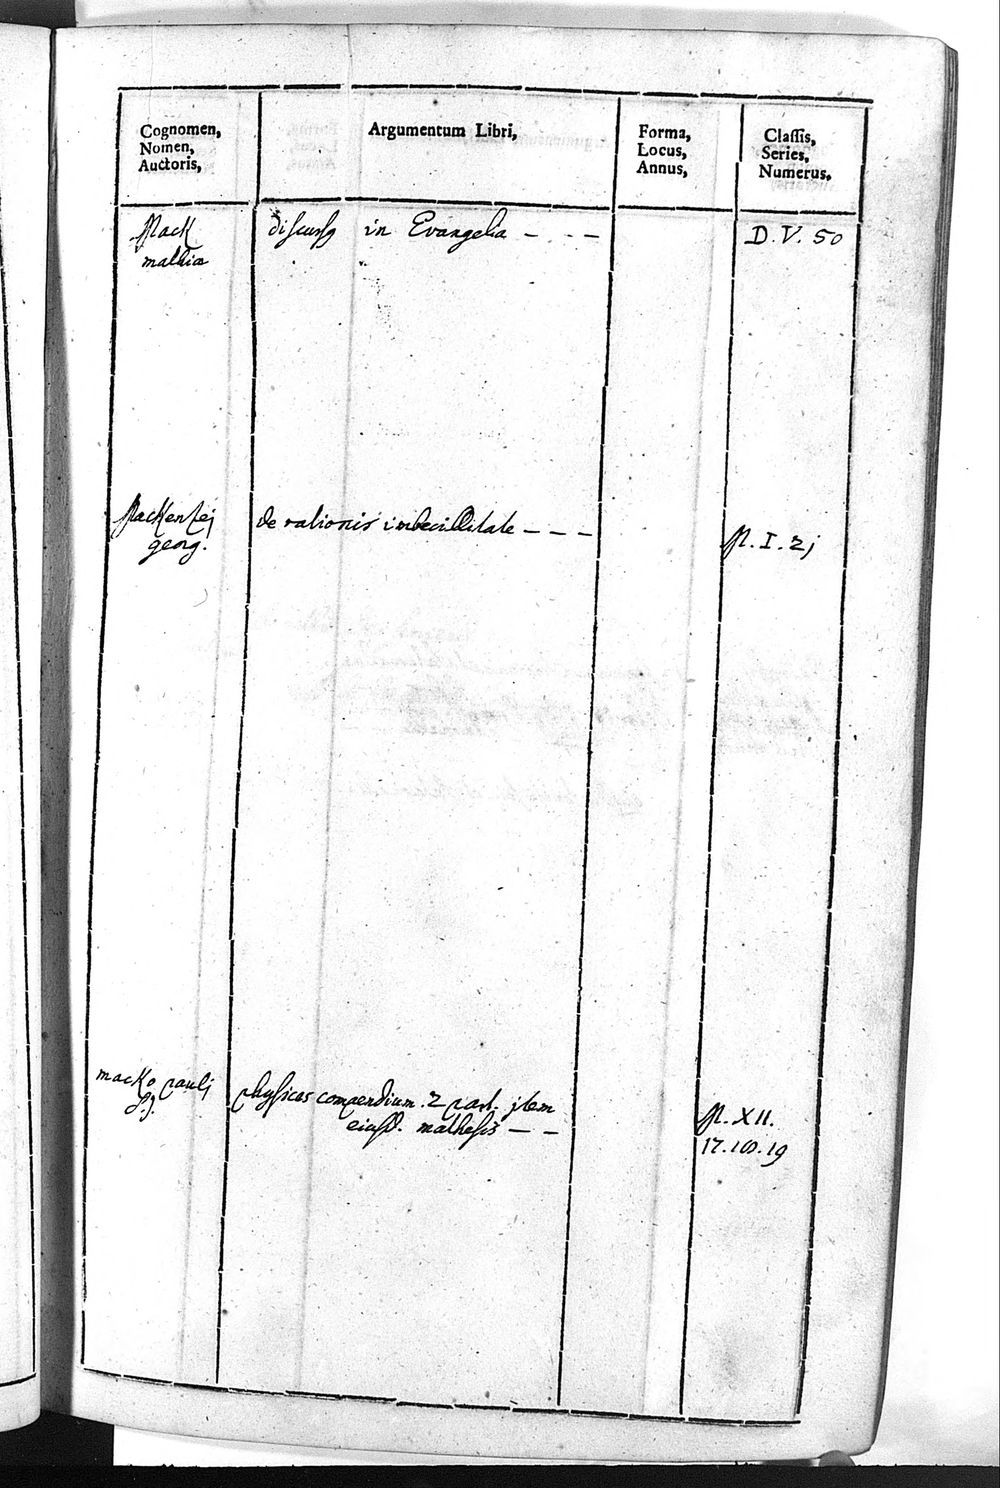 Cognomen,
Nomen,
Auctoris,
Argumentum Libri,
Forma,
Locus,
Annus,
Classis,
Series,
Numerus.
Mack
mathia
discursq in Evangelia - - - -
D. V. 50
Mackenzej
georg.
de rationis imbecillitate - - -
M. I. 2j
macko pauli
S.J.
physices compendium. 2 part. jtem
eiusd. mathesis - -
M. XII.
17. 18. 19